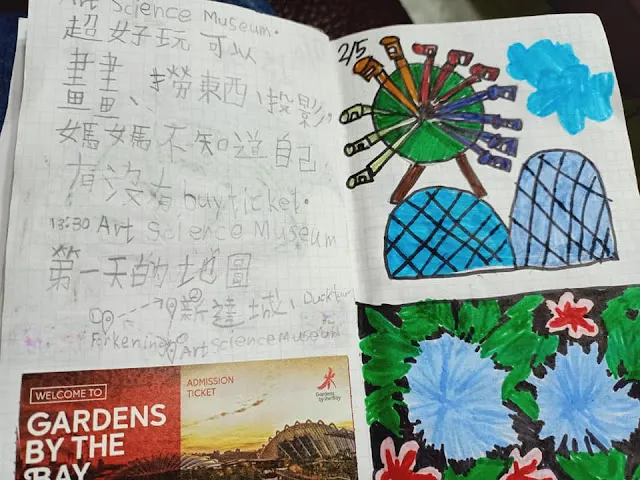 Art Science Museum.
超好玩可以
畫畫、撈東西、投影,
媽媽不知道自己
有沒有buy ticket.
13:30 Art Science Museum
第一天的地圖
新達城、Ducktour
Art Science Museum
WELCOME TO
GARDENS
BY THE
BAY
ADMISSION
TICKET
Gardens
by the Bay
2/5